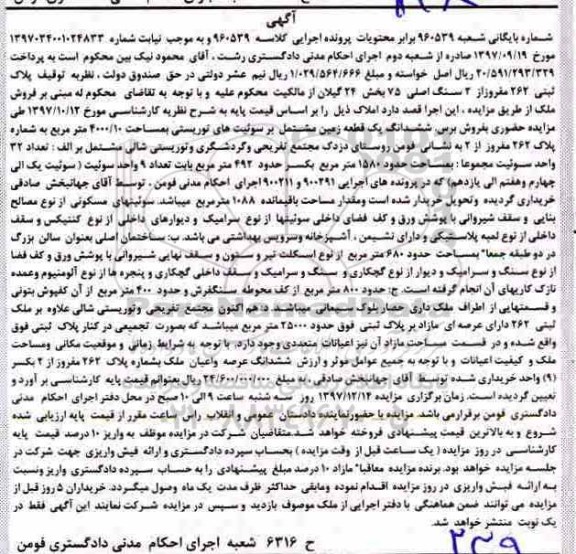 آگهی
شماره بایگانی شعبه ۹۶۰۵۳۹ برابر محتویات پرونده اجرایی کلاسه ۹۶۰۵۳۹ و به موجب نیابت شماره ۱۳۹۷۰۳۴۰۰۱۰۲۴۸۳۳
مورخ ۱۳۹۷/۰۹/۱۹ صادره از شعبه دوم اجرای احکام مدنی دادگستری رشت ، آقای محمود نیک بین محکوم است به پرداخت
۲۰/۵۹۱/۲۹۳/۳۲۹ ریال اصل خواسته و مبلغ ۱/۰۲۹/۵۶۴/۶۶۶ ریال نیم عشر دولتی در حق صندوق دولت ، نظریه توقیف پلاک
ثبتی ۲۶۲ مفروزاز ۲ سنگ اصلی ۷۵ بخش ۲۴ گیلان از مالکیت محکوم علیه و با توجه به تقاضای محکوم له مبنی بر فروش
ملک از طریق مزایده ، این اجرا قصد دارد املاک ذیل را بر اساس قیمت پایه به شرح نظریه کارشناسی مورخ ۱۳۹۷/۱۰/۱۲ طی
مزایده حضوری بفروش برساند ششدانگ یک قطعه زمین مشتمل بر سوئیت های توریستی بمساحت ۴۰۰۰/۱۰ متر مربع به شماره
پلاک ۲۶۲ مفروز از ۲ به نشانی فومن روستای دزدک مجتمع تفریحی وگردشگری وتوریستی شالی مشتمل بر الف : تعداد ۳۲
واحد سوئیت مجموعا : بمساحت حدود ۱۵۸۰ متر مربع یکسر حدود ۴۹۲ متر مربع بابت تعداد ۹ واحد سوئیت ( سوئیت یک الی
چهارم وهفتم الی یازدهم) که در پرونده های اجرایی ۹۰۰۳۹۱ و ۹۰۰۲۱۱ اجرای احکام مدنی فومن ، توسط آقای جهانبخش صادقی
خریداری گردیده وتحویل خریدار شده است ومقدار مساحت باقیمانده ۱۰۸۸ مترمربع میباشد. سوئیتهای مسکونی از نوع مصالح
بنایی و سقف شیروانی با پوشش ورق و کف فضای داخلی سوئیتها از نوع سرامیک و دیوارهای داخلی از نوع کنتیکس و سقف
داخلی از نوع لمبه پلاستیکی و دارای نشیمن ، آشپزخانه وسرویس بهداشتی می باشد. ب: ساختمان اصلی بعنوان سالن بزرگ
در دو طبقه جمعا" بمساحت حدود ۶۸۰ متر مربع از نوع اسکلت تیر و ستون و سقف نهایی شیروانی با پوشش ورق و کف فضا
از نوع سنگ و سرامیک و دیوار از نوع گچکاری و سنگ و سرامیک و سقف داخلی گچکاری و پنجره ها از نوع آلومنیوم وعمده
نازک کاریهای آن انجام گرفته است. ج: حدود ۸۰۰ متر مربع از کف محوطه سنگفرش و حدود ۴۰۰ متر مربع از آن کفپوش بتونی
و قسمتهایی از اطراف ملک داری حصار بلوک سیمانی میباشد و هم اکنون مجتمع تفریحی وتوریستی شالی علاوه بر ملک
ثبتی ۲۶۲ دارای عرصه ای مازاد بر پلاک ثبتی فوق حدود ۲۵۰۰۰ متر مربع میباشد که بصورت تجمیعی در کنار پلاک ثبتی فوق
واقع شده و در قسمت مساحت مازاد آن نیز اعیانات متعددی وجود دارد. با توجه به شرایط زمانی و موقعیت مکانی ومساحت
ملک و کیفیت اعیانات و با توجه به جمیع عوامل موثر و ارزش ششدانگ عرصه واعیان ملک بشماره پلاک ۲۶۲ مفروز از ۲ بکسر
(۹) واحد خریداری شده توسط آقای جهانبخش صادقی به مبلغ ۲۴/۶۰۰/۰۰۰/۰۰۰ ریال بعنوانم قیمت پایه کارشناسی بر آورد و
تعیین گردیده است. زمان برگزاری مزایده ۱۳۹۷/۱۲/۱۴ روز سه شنبه ساعت ۹ الی ۱۰ صبح در محل دفتر اجرای احکام مدنی
دادگستری فومن برقرار می باشد. مزایده با حضورنماینده دادستان عمومی و انقلاب راس ساعت مقرر از قیمت پایه ارزیابی شده
شروع و به بالاترین قیمت پیشنهادی فروخته خواهد شد.متقاضیان شرکت در مزایده موظف به واریز ۱۰ درصد قیمت پایه
کارشناسی در روز مزایده ( یک ساعت قبل از وقت مزایده ) بحساب سپرده دادگستری و ارائه فیش واریزی جهت شرکت در
جلسه مزایده خواهد بود. برنده مزایده معاقبا" مازاد ۱۰ درصد مبلغ پیشنهادی را به حساب سپرده دادگستری واریز ونسبت
به ارائه فیش واریزی در روز مزایده اقدام نموده ومابقی حداکثر ظرف مدت یک ماه وصول میگردد. خریداران ۵ روز قبل از
مزایده می توانند ضمن هماهنگی با دفتر اجرایی از ملک موصوف بازدید و سپس در مزایده شرکت نمایند این آگهی فقط در
یک نوبت منتشر خواهد شد.
ح ۶۳۱۶ شعبه اجرای احکام مدنی دادگستری فومن
۲۳۹